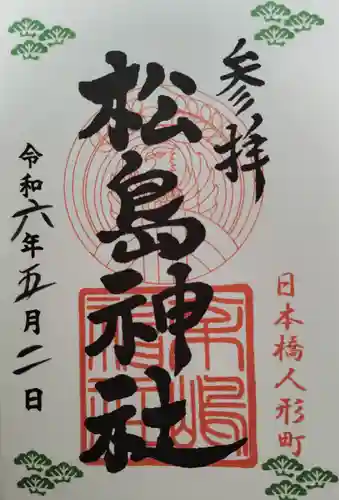 参拝
日本橋人形町
松島神社
令和六年五月二日